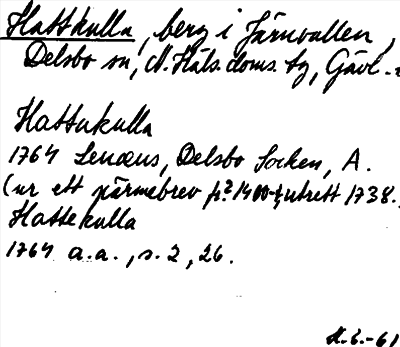 Hattkulla, berg i Järnvallen,
Delsbo sn, N. Häls. doms. tg, Gävl.
Hattukulla
1764 Lenæus, Delsbo Socken, A.
(ur ett pärmebrev fr. 1400-t, utrett 1738.
Hattekulla
1764 a.a., s. 2, 26.